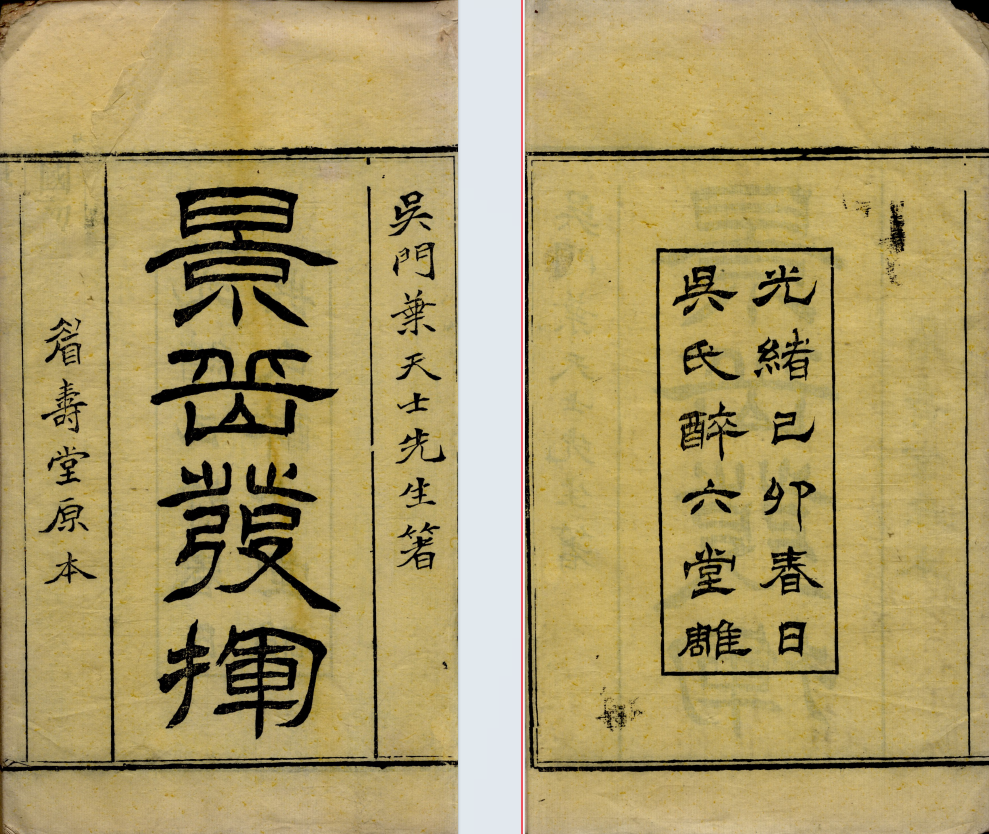 吳門葉天士先生箸
景岳發揮
眉壽堂原本
光緒己卯春日
吳氏醉六堂雕